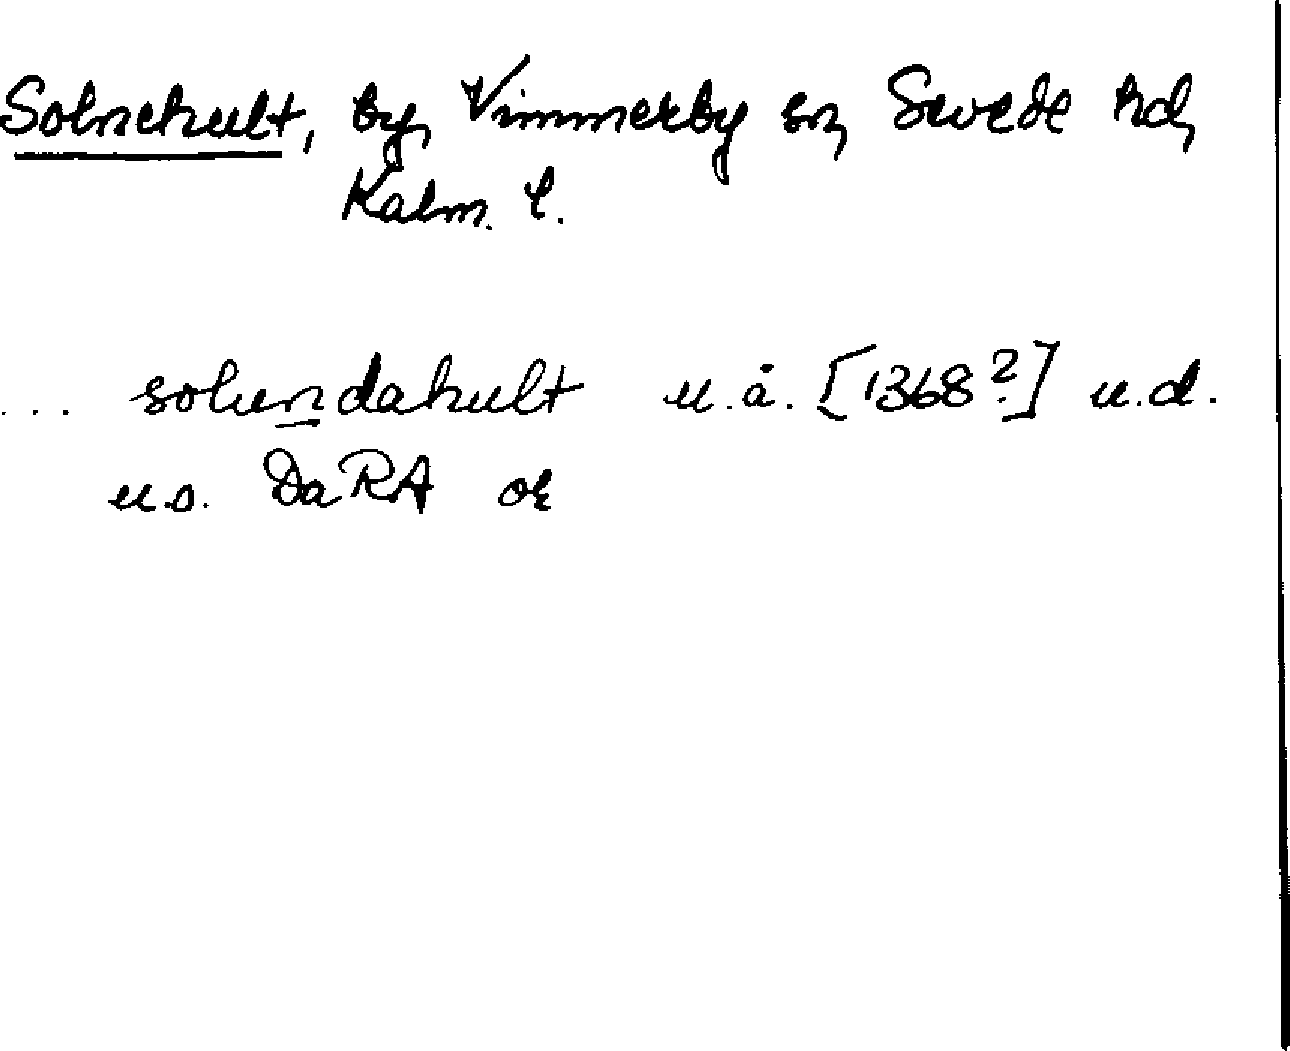 Solnehult, by, Vimmerby sn, Sevede hd,
Kalm. l.
... solundakult u.å. [1368?] u.d.
u.o. DaRA or